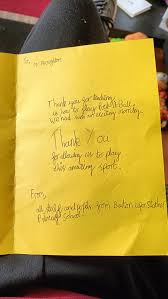 To,
Thank you for teaching
us how to play
we had such an exciting morning.
Thank You
for allowing us to play
this amazing sport.
From,
all staff and pupils from
School